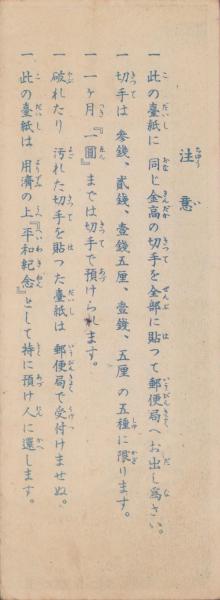 注意
一 此の臺紙に 同じ金高の切手を全部に貼つて郵便局へお出し爲さい。
一 切手は 參錢、貳錢、壹錢五厘、壹錢、五厘 の五種に限ります。
一 一ヶ月『一圓』までは切手で預けられます。
一 破れたり 汚れた切手を貼つた臺紙は 郵便局で受付けませぬ。
一 此の臺紙は 用濟の上『平和紀念』として特に預け人に還します。